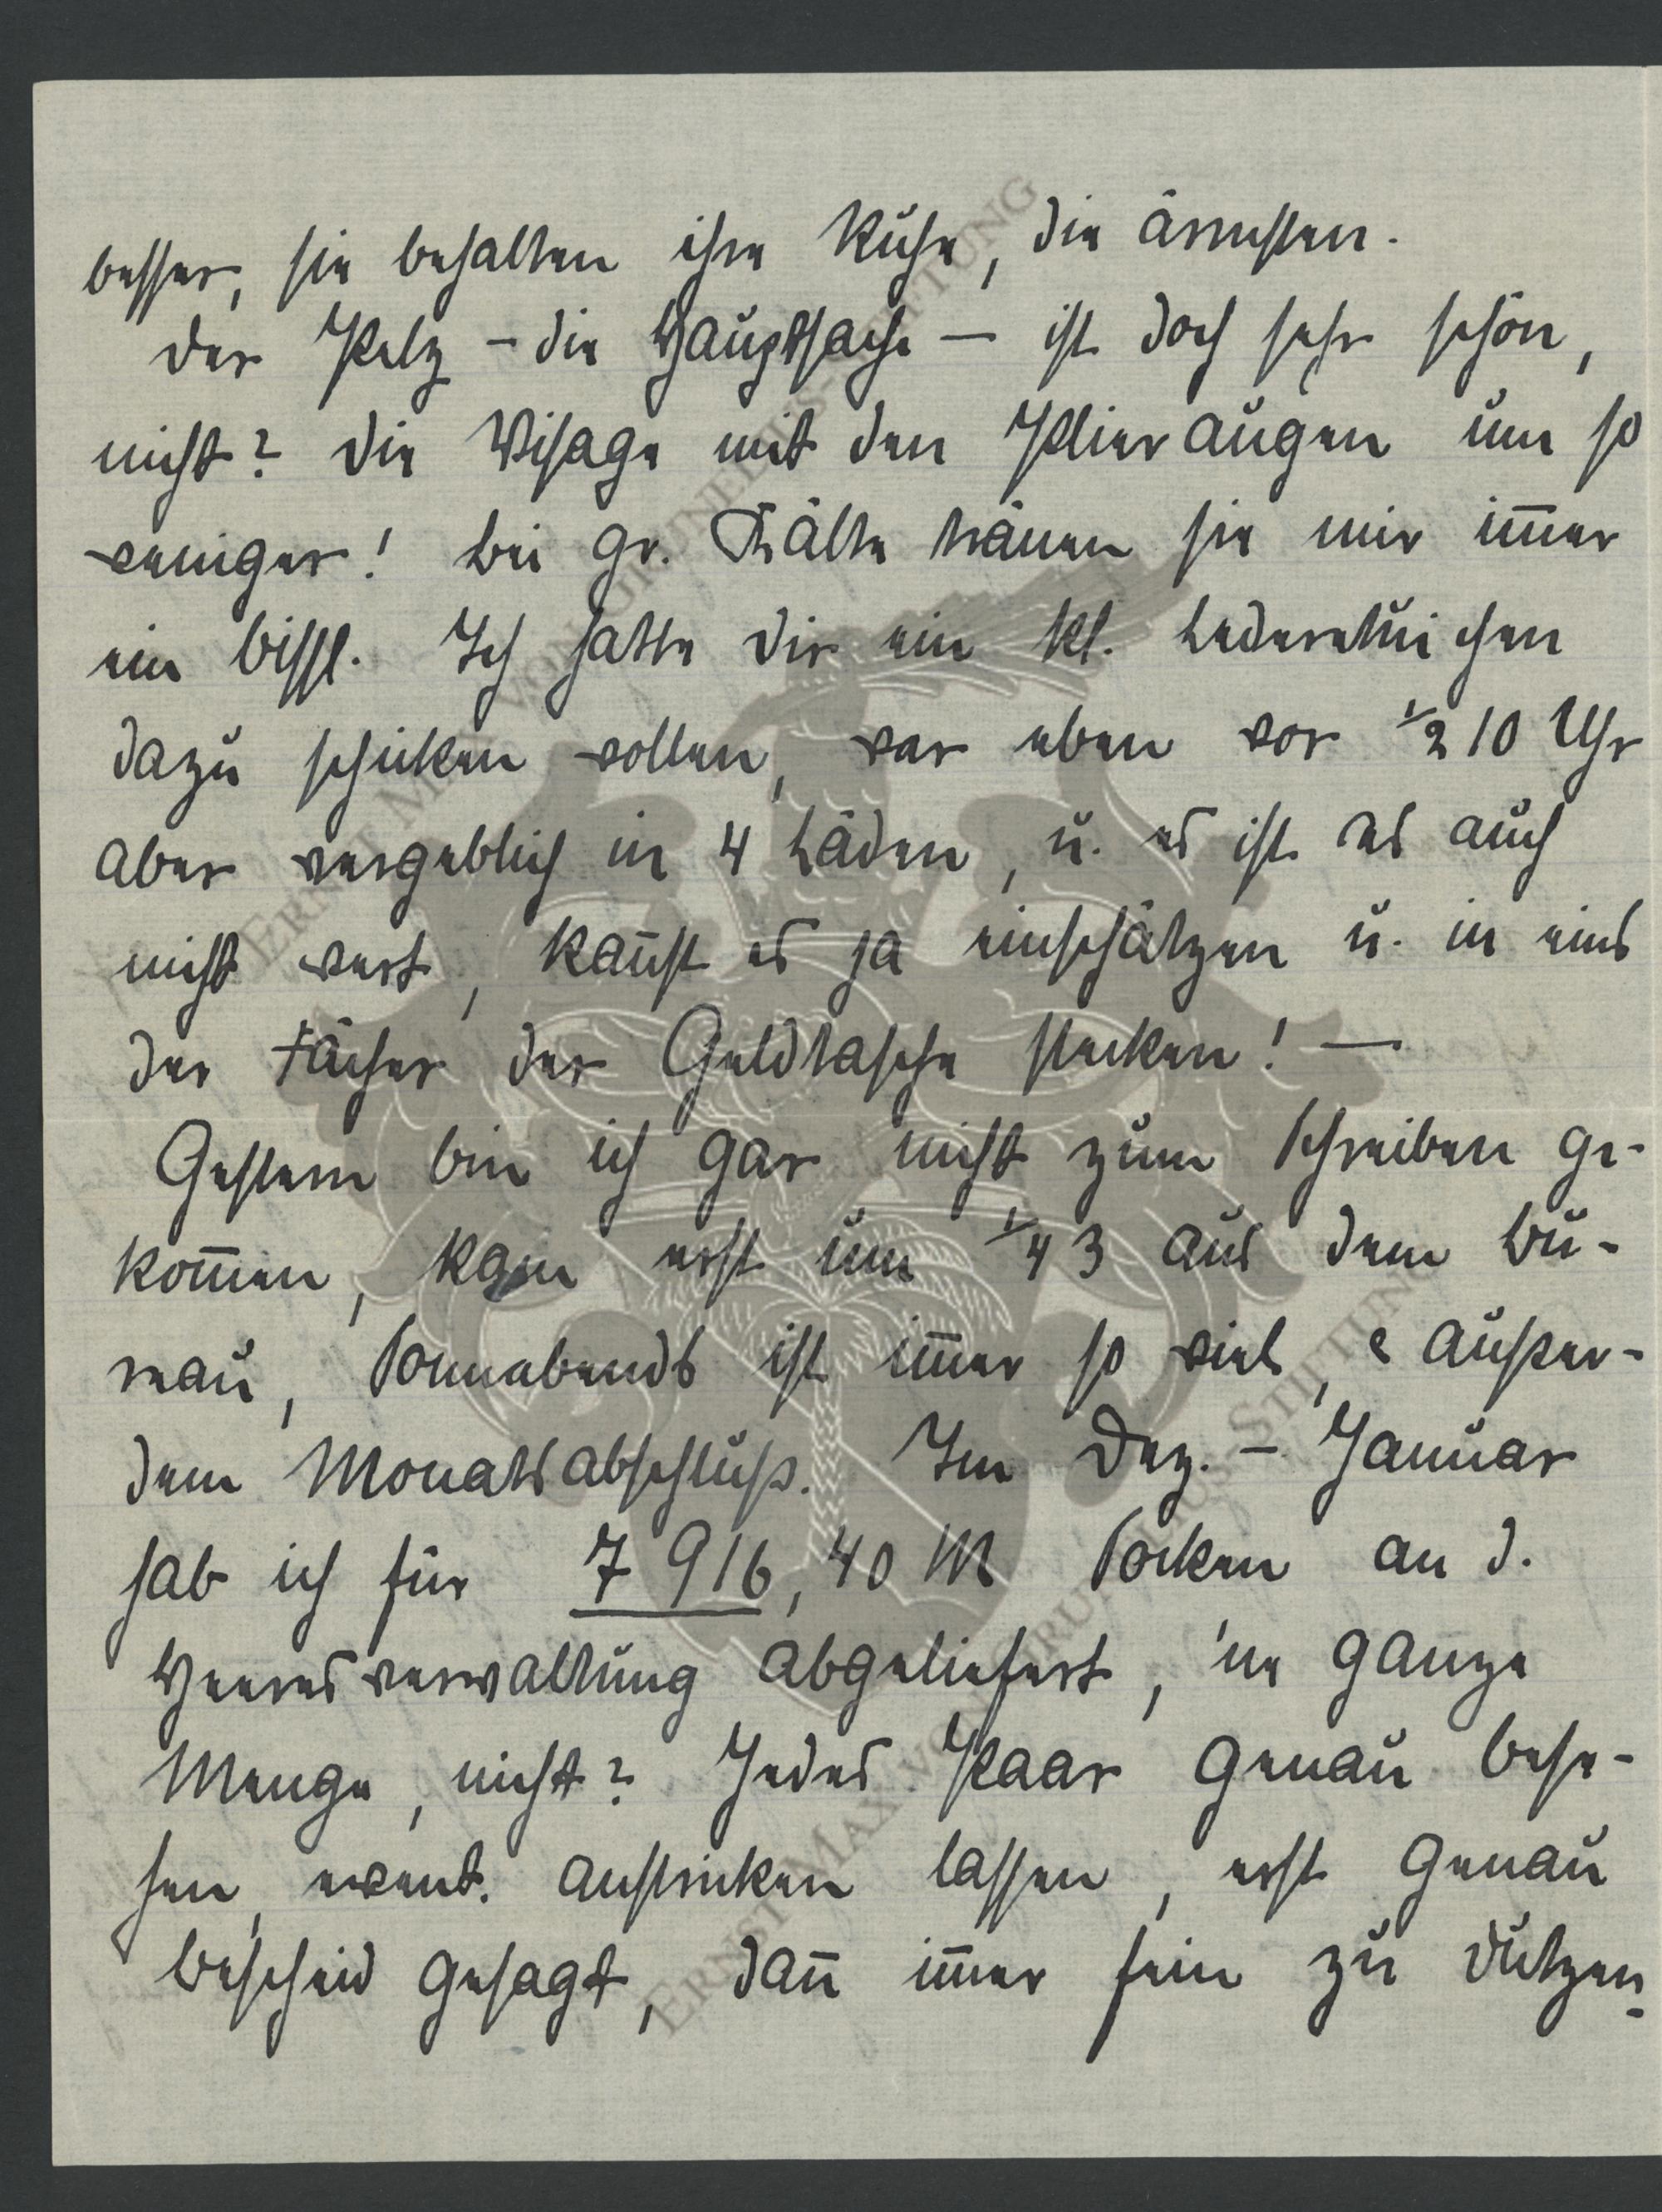 besser, sie behalten ihre Ruhe, die ärmsten.
Der Pelz – die Hauptsache – ist doch sehr schön,
nicht? Die Visage mit den Plieraugen um so
weniger! Bei gr. Kälte tränen sie mir im̅er
ein bissl. Ich hatte Dir ein kl. Lederetuichen
dazu schicken wollen, war eben vor ½ 10 Uhr
aber vergeblich in 4 Läden, u. es ist es auch
nicht wert, kan̅st es ja einschätzen u. in eins
der Fächer der Geldtasche stecken! —
Gestern bin ich gar nicht zum Schreiben ge-
kom̅en, kam erst um ¼ 3 aus dem Bü-
reau, Sonnabends ist im̅er so viel, & außer-
dem Monatsabschluß. Im Dez. – Januar
hab ich für 7 916,40 M Socken an d.
Heeresverwaltung abgeliefert, 'ne ganze
Menge, nicht? Jedes Paar genau bese-
hen, event. anstricken lassen, erst genau
Bescheid gesagt, dan̅ im̅er fein zu Dutzen-
ERNST MAX VON GRUNELIUS-STIFTUNG
ERNST MAX VON GRUNELIUS-STIFTUNG